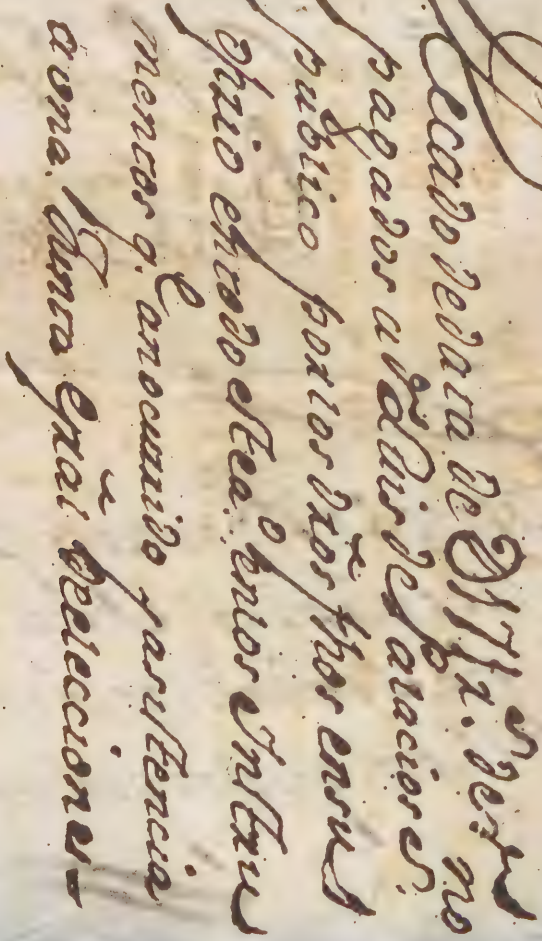 Recado de data de D 177 p.s de r.s
pagados a D.n Luis de Palacios es.no
publico por los dr̃os fhos en su
ofizio en todo este a.o en los instru
mentos q. an ocurrido y asistencia
a una Junta Gräl de elecciones